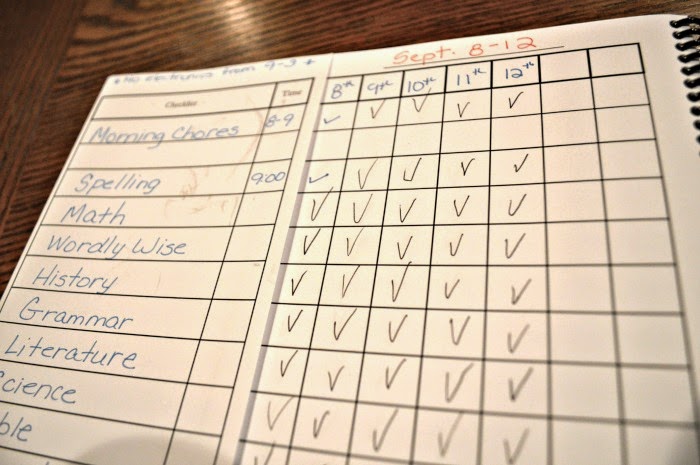 Sept. 8-12
* No electronics from 9-3 *
Checklist Time 8th 9th 10th 11th 12th
Morning Chores 8-9 ✓ ✓ ✓ ✓ ✓
Spelling 9:00 ✓ ✓ ✓ ✓ ✓
Math ✓ ✓ ✓ ✓ ✓
Wordly Wise ✓ ✓ ✓ ✓ ✓
History ✓ ✓ ✓ ✓ ✓
Grammar ✓ ✓ ✓ ✓ ✓
Literature ✓ ✓ ✓ ✓ ✓
Science ✓ ✓ ✓ ✓ ✓
ble